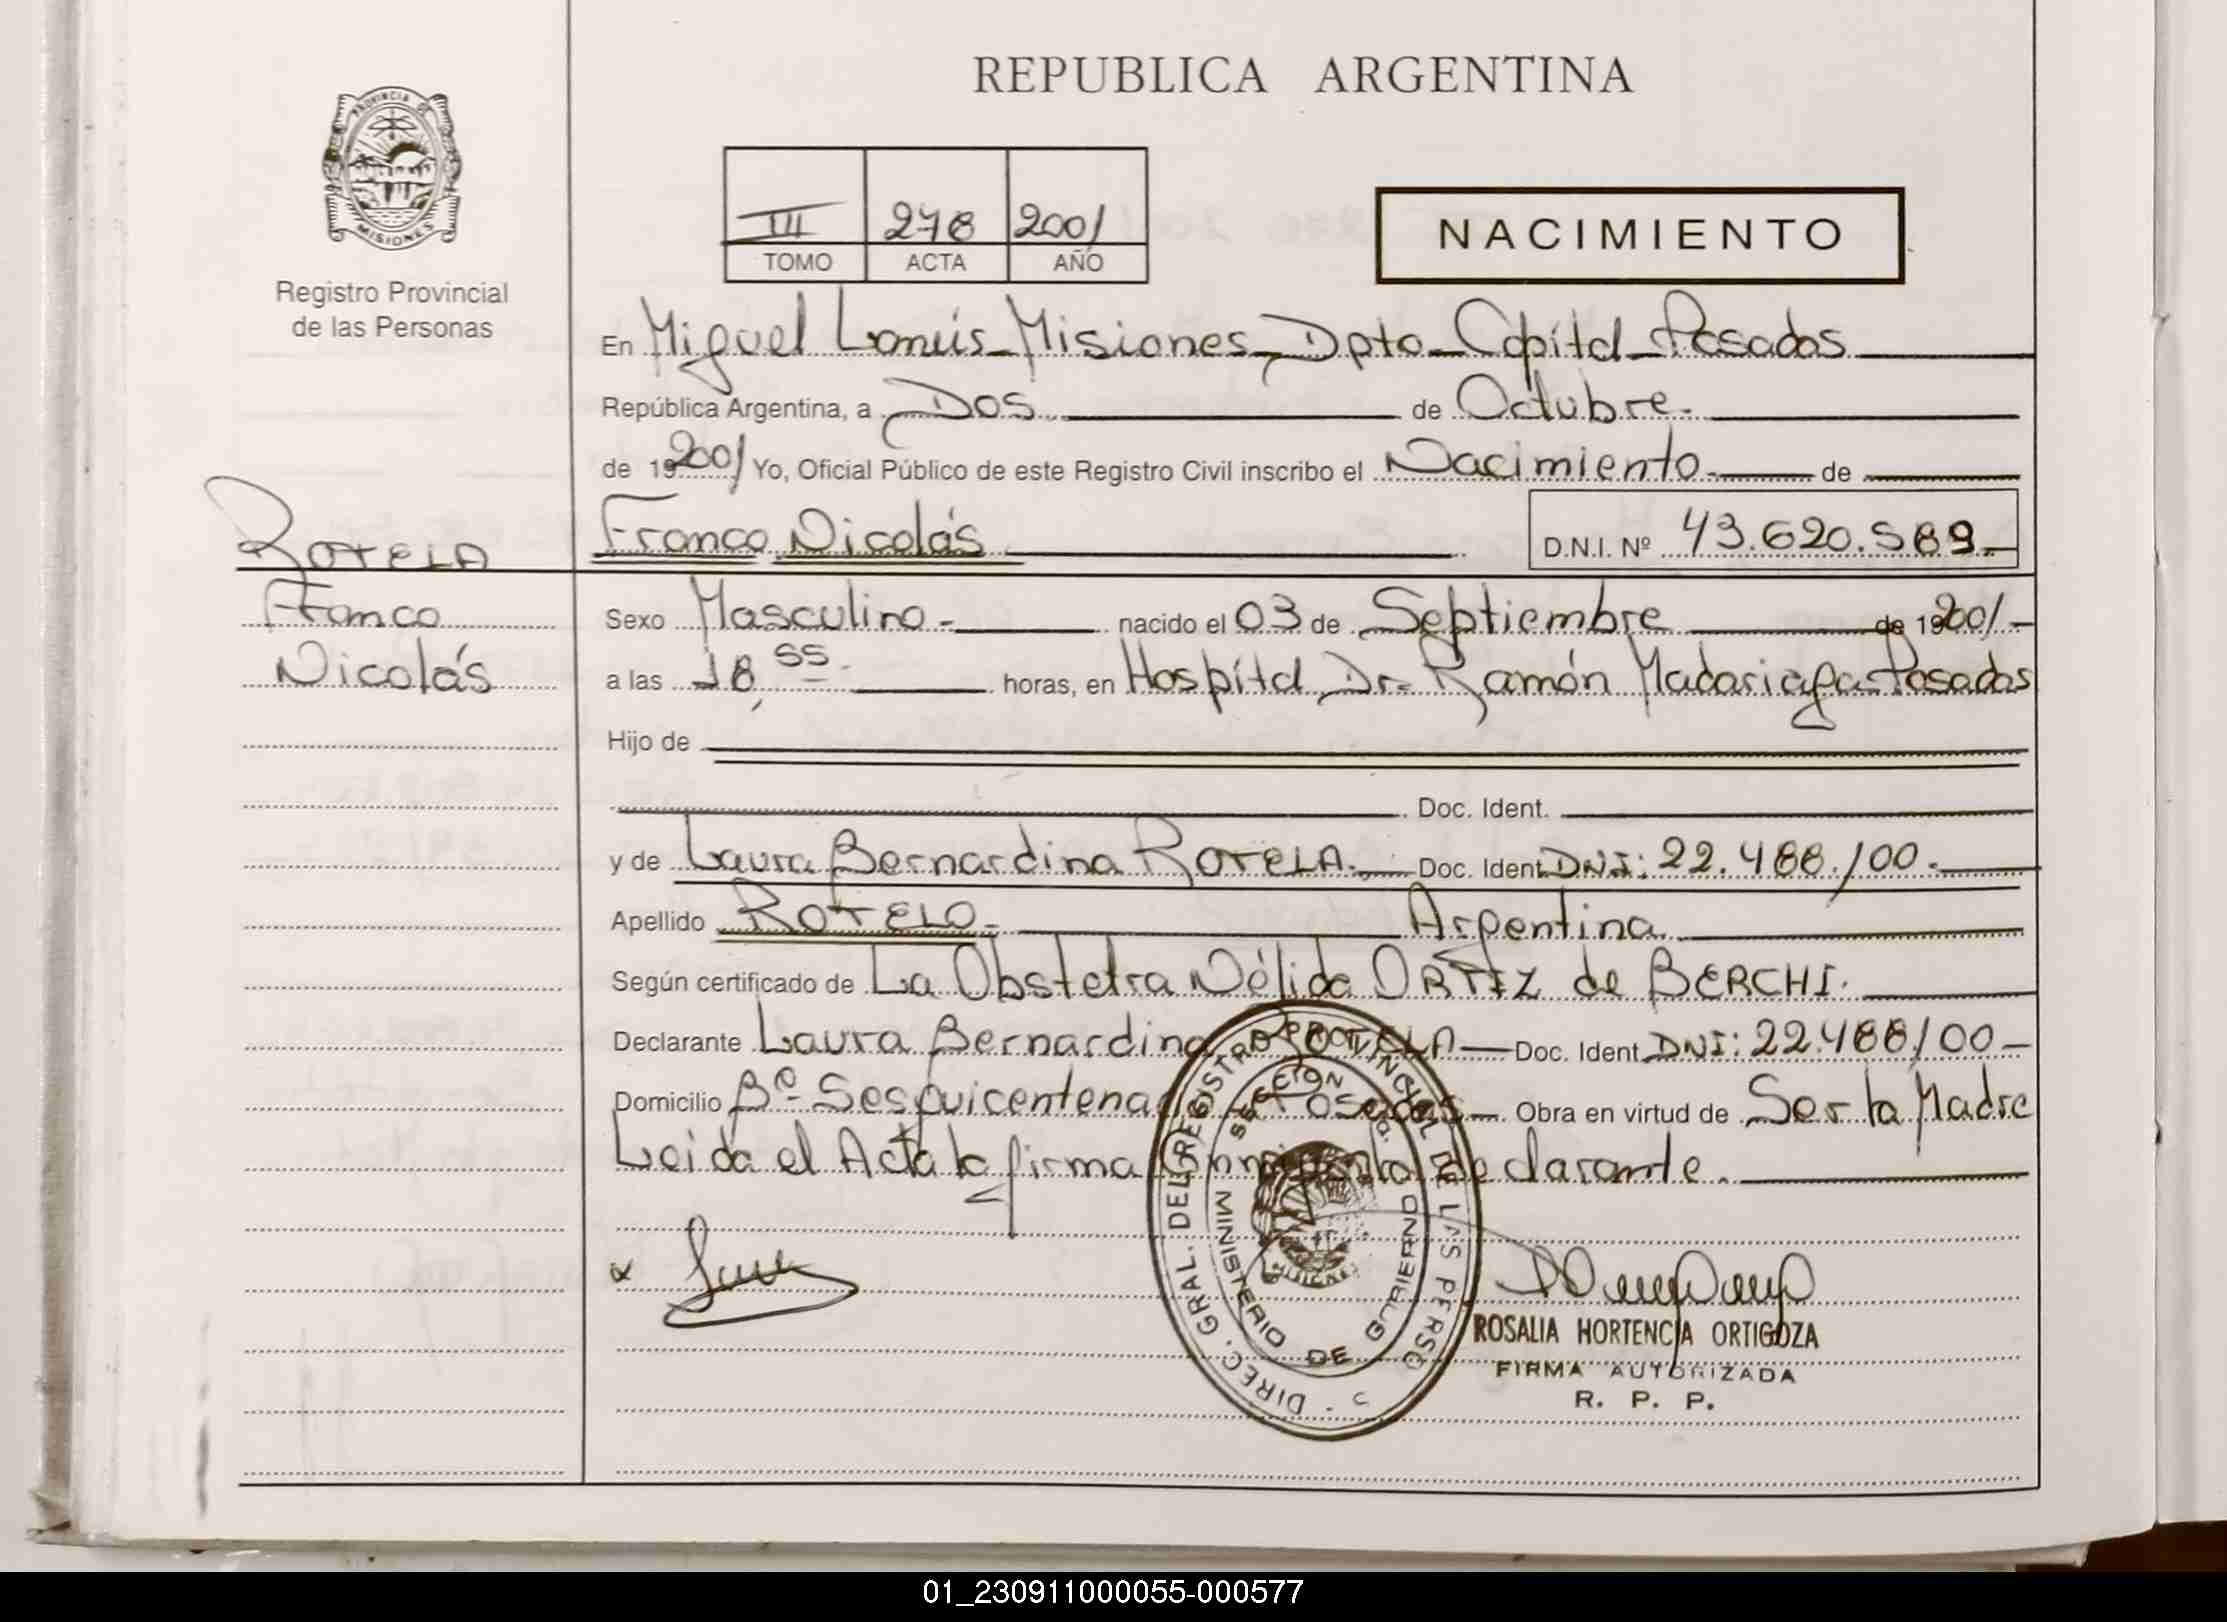 REPUBLICA ARGENTINA
PROVINCIA DE
MISIONES
Registro Provincial
de las Personas
III 278 2001
TOMO ACTA AÑO
NACIMIENTO
En Miguel Lanús - Misiones, Dpto - Capital - Posadas
República Argentina, a Dos de Octubre.
de 19 2001 Yo, Oficial Público de este Registro Civil inscribo el Nacimiento. de
ROTELA Franco Nicolás D.N.I. Nº 43.620.589.-
Franco Sexo Masculino - nacido el 03 de Septiembre de 19 2001 -
Nicolás a las 18,55 horas, en Hospital Dr. Ramón Madariaga - Posadas
Hijo de
Doc. Ident.
y de Laura Bernardina ROTELA. Doc. Ident. DNI: 22.488.100.
Apellido ROTELA - Argentina
Según certificado de La Obstetra Nélida ORTIZ de BERCHI.
Declarante Laura Bernardina ROTELA - Doc. Ident. DNI: 22.488.100 -
Domicilio Bº Sesquicentenario Posadas - Obra en virtud de Ser la Madre
Leida el Acta la firma Conmigo la declarante.
DIREC. GRAL. DEL REGISTRO PROVINCIAL DE LAS PERSO
SECCION
MINISTERIO DE GOBIERNO
ROSALIA HORTENCIA ORTIGOZA
FIRMA AUTORIZADA
R. P. P.
01_230911000055-000577